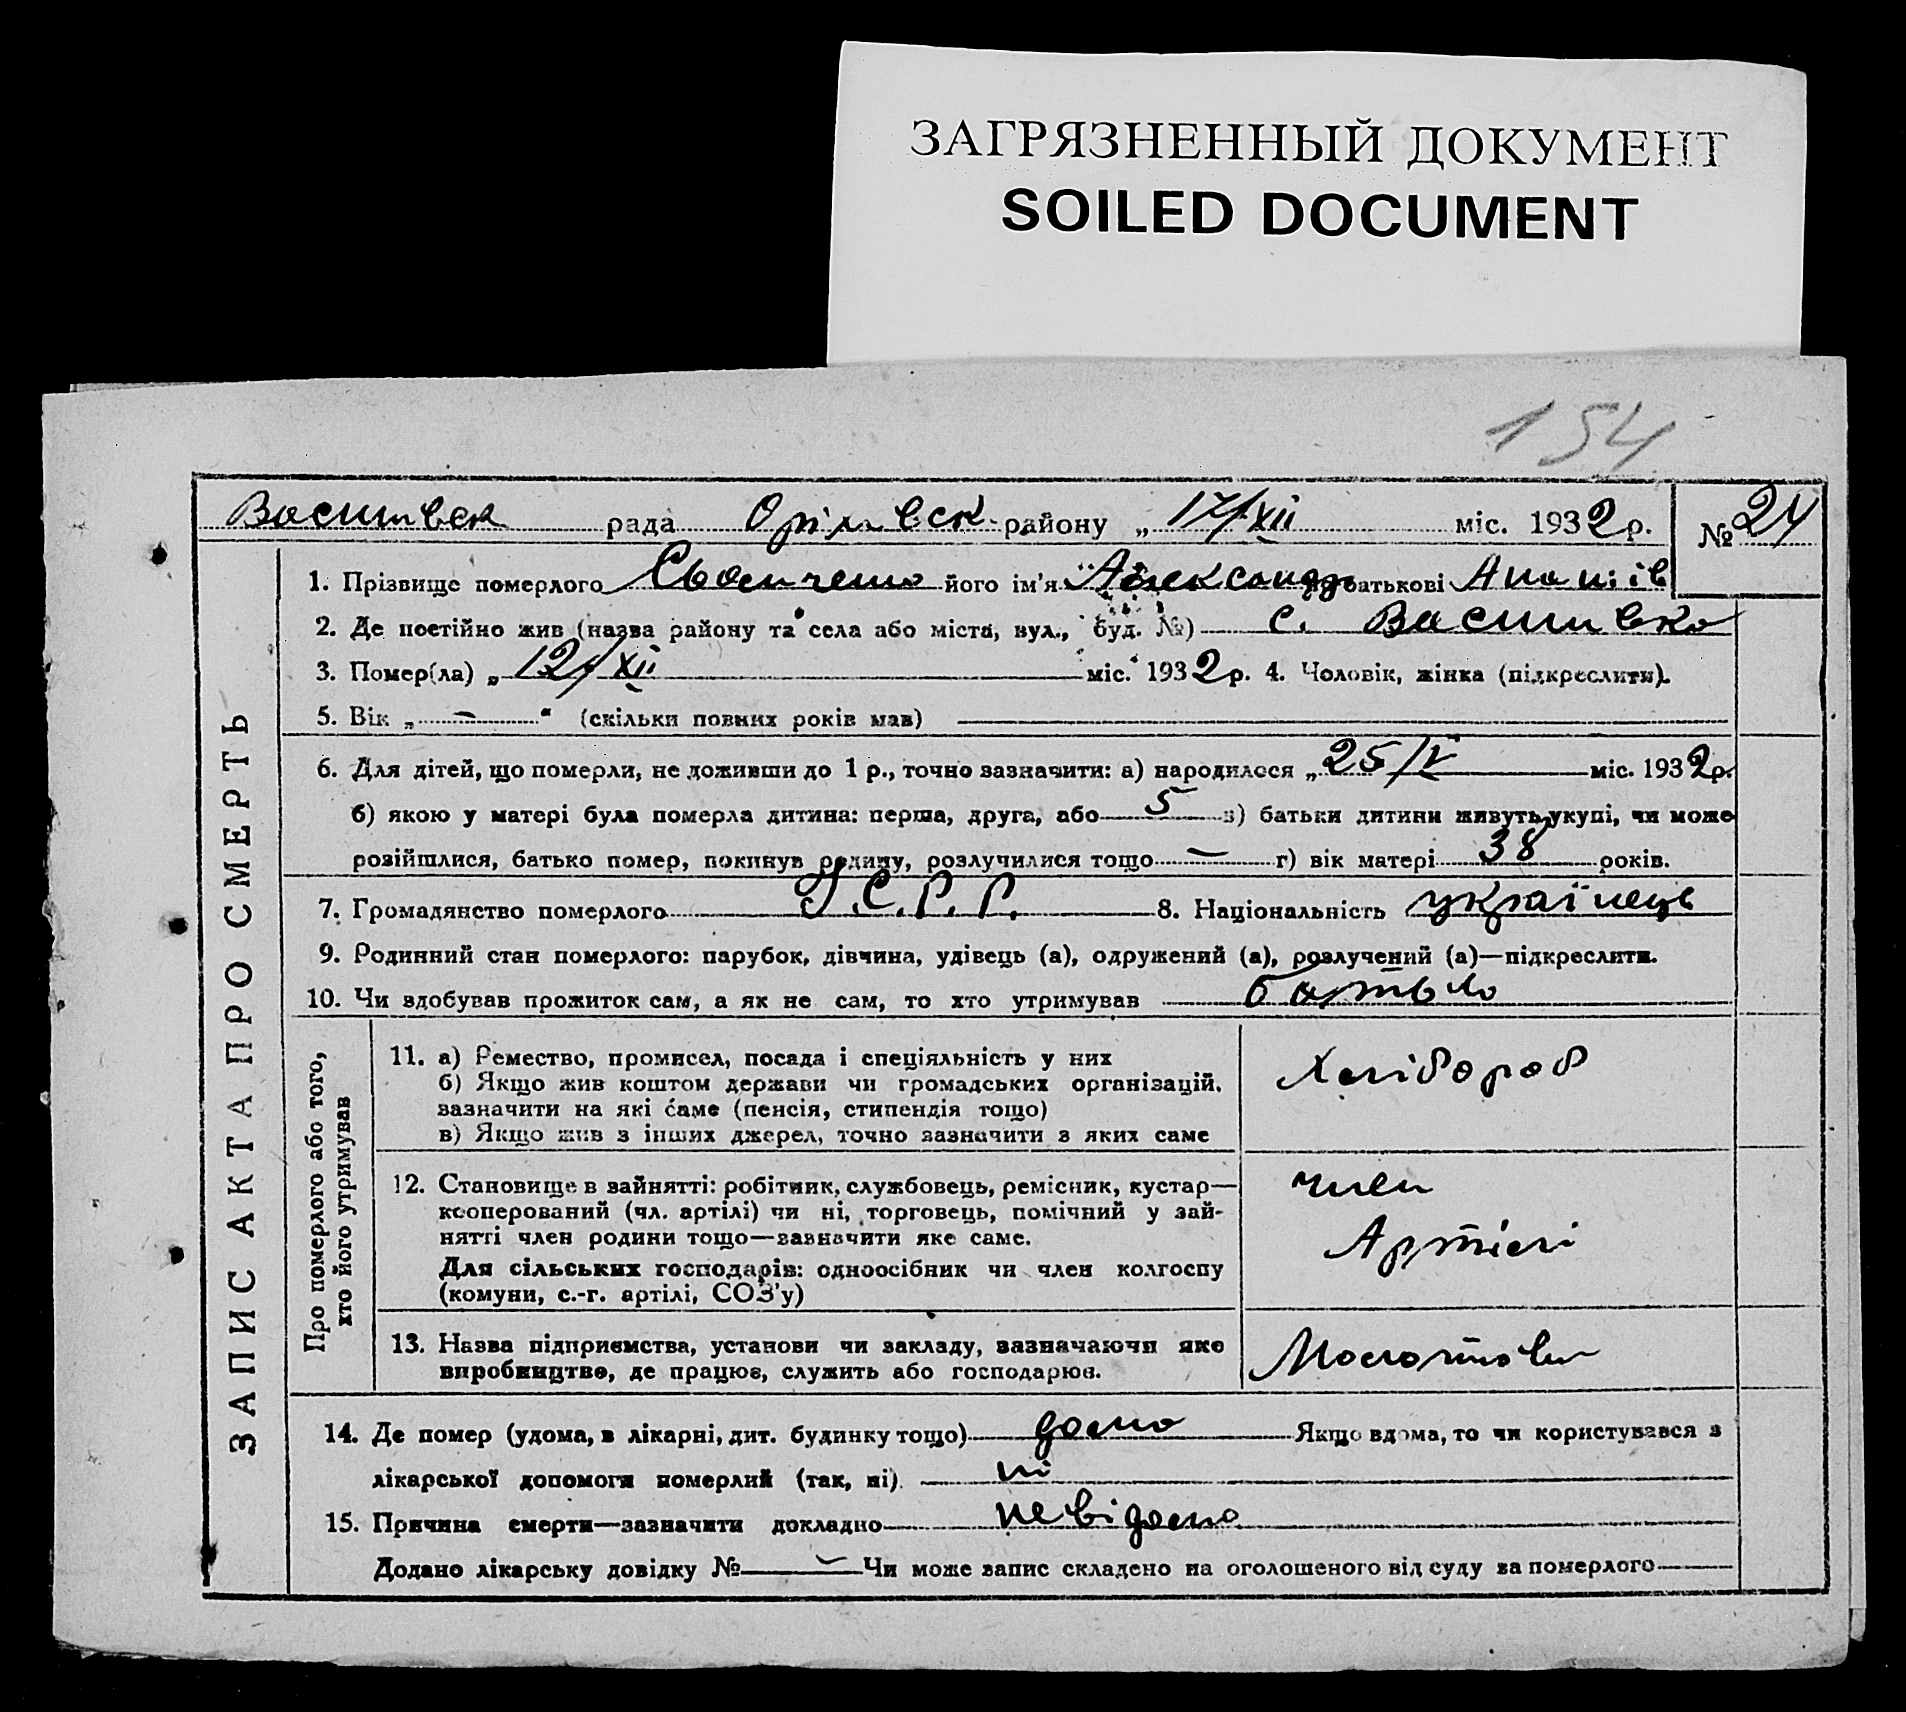 ЗАГРЯЗНЕННЫЙ ДОКУМЕНТ
SOILED DOCUMENT
154
рада Оріхівск району „ 17/XII міс. 1932 р. № 24
ЗАПИС АКТА ПРО СМЕРТЬ
1. Прізвище померлого його ім'я Александр батькові Ананіів
2. Де постійно жив (назва району та села або міста, вул., буд. №) с.
3. Помер(ла) „ 12/XII міс. 1932 р. 4. Чоловік, жінка (підкреслити).
5. Вік „ — " (скільки повних років мав)
6. Для дітей, що померли, не доживши до 1 р., точно зазначити: а) народилося „ 25/V міс. 1932 р.
б) якою у матері була померла дитина: перша, друга, або 5 в) батьки дитини живуть укупі, чи може
розійшлися, батько помер, покинув родину, розлучилися тощо — г) вік матері 38 років.
7. Громадянство померлого У.С.Р.Р. 8. Національність українець
9. Родинний стан померлого: парубок, дівчина, удівець (а), одружений (а), розлучений (а)—підкреслити.
10. Чи здобував прожиток сам, а як не сам, то хто утримував батько
Про померлого або того,
хто його утримував
11. а) Ремество, промисел, посада і спеціяльність у них
б) Якщо жив коштом держави чи громадських організацій,
зазначити на які саме (пенсія, стипендія тощо)
в) Якщо жив з інших джерел, точно зазначити з яких саме
Хлібороб
12. Становище в зайнятті: робітник, службовець, ремісник, кустар—
кооперований (чл. артілі) чи ні, торговець, помічний у зай-
нятті член родини тощо—зазначити яке саме.
Для сільських господарів: одноосібник чи член колгоспу
(комуни, с.-г. артілі, СОЗ'у)
член
Артілі
13. Назва підприємства, установи чи закладу, зазначаючи яке
виробництво, де працює, служить або господарює.
14. Де помер (удома, в лікарні, дит. будинку тощо) дома Якщо вдома, то чи користувався з
лікарської допомоги померлий (так, ні) ні
15. Причина смерти—зазначити докладно невідомо
Додано лікарську довідку № — Чи може запис складено на оголошеного від суду за померлого